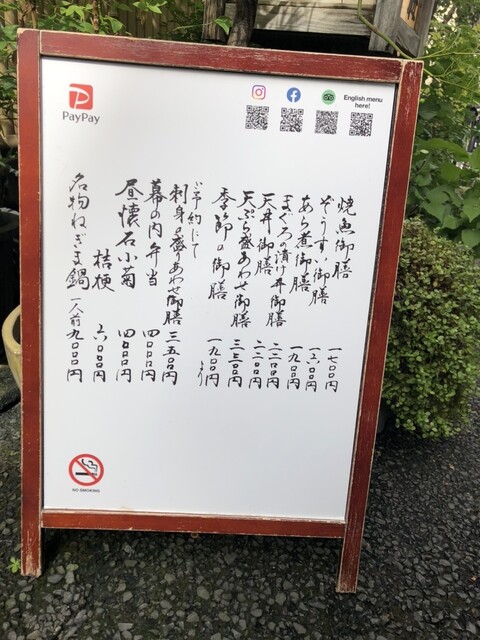 PayPay
English menu
here!
焼魚御膳 一七〇〇円
ぞうすい御膳 一六〇〇円
あら煮御膳 一九〇〇円
まぐろの漬け丼御膳 二二〇〇円
天丼御膳 二二〇〇円
天ぷら盛あわせ御膳 三三〇〇円
季節の御膳 一九〇〇円より
ご予約にて
刺身の盛りあわせ御膳 三五〇〇円
幕の内弁当 四〇〇〇円
昼懐石小菊 四五〇〇円
桔梗 六〇〇〇円
名物ねぎま鍋 一人前九〇〇〇円
NO SMOKING